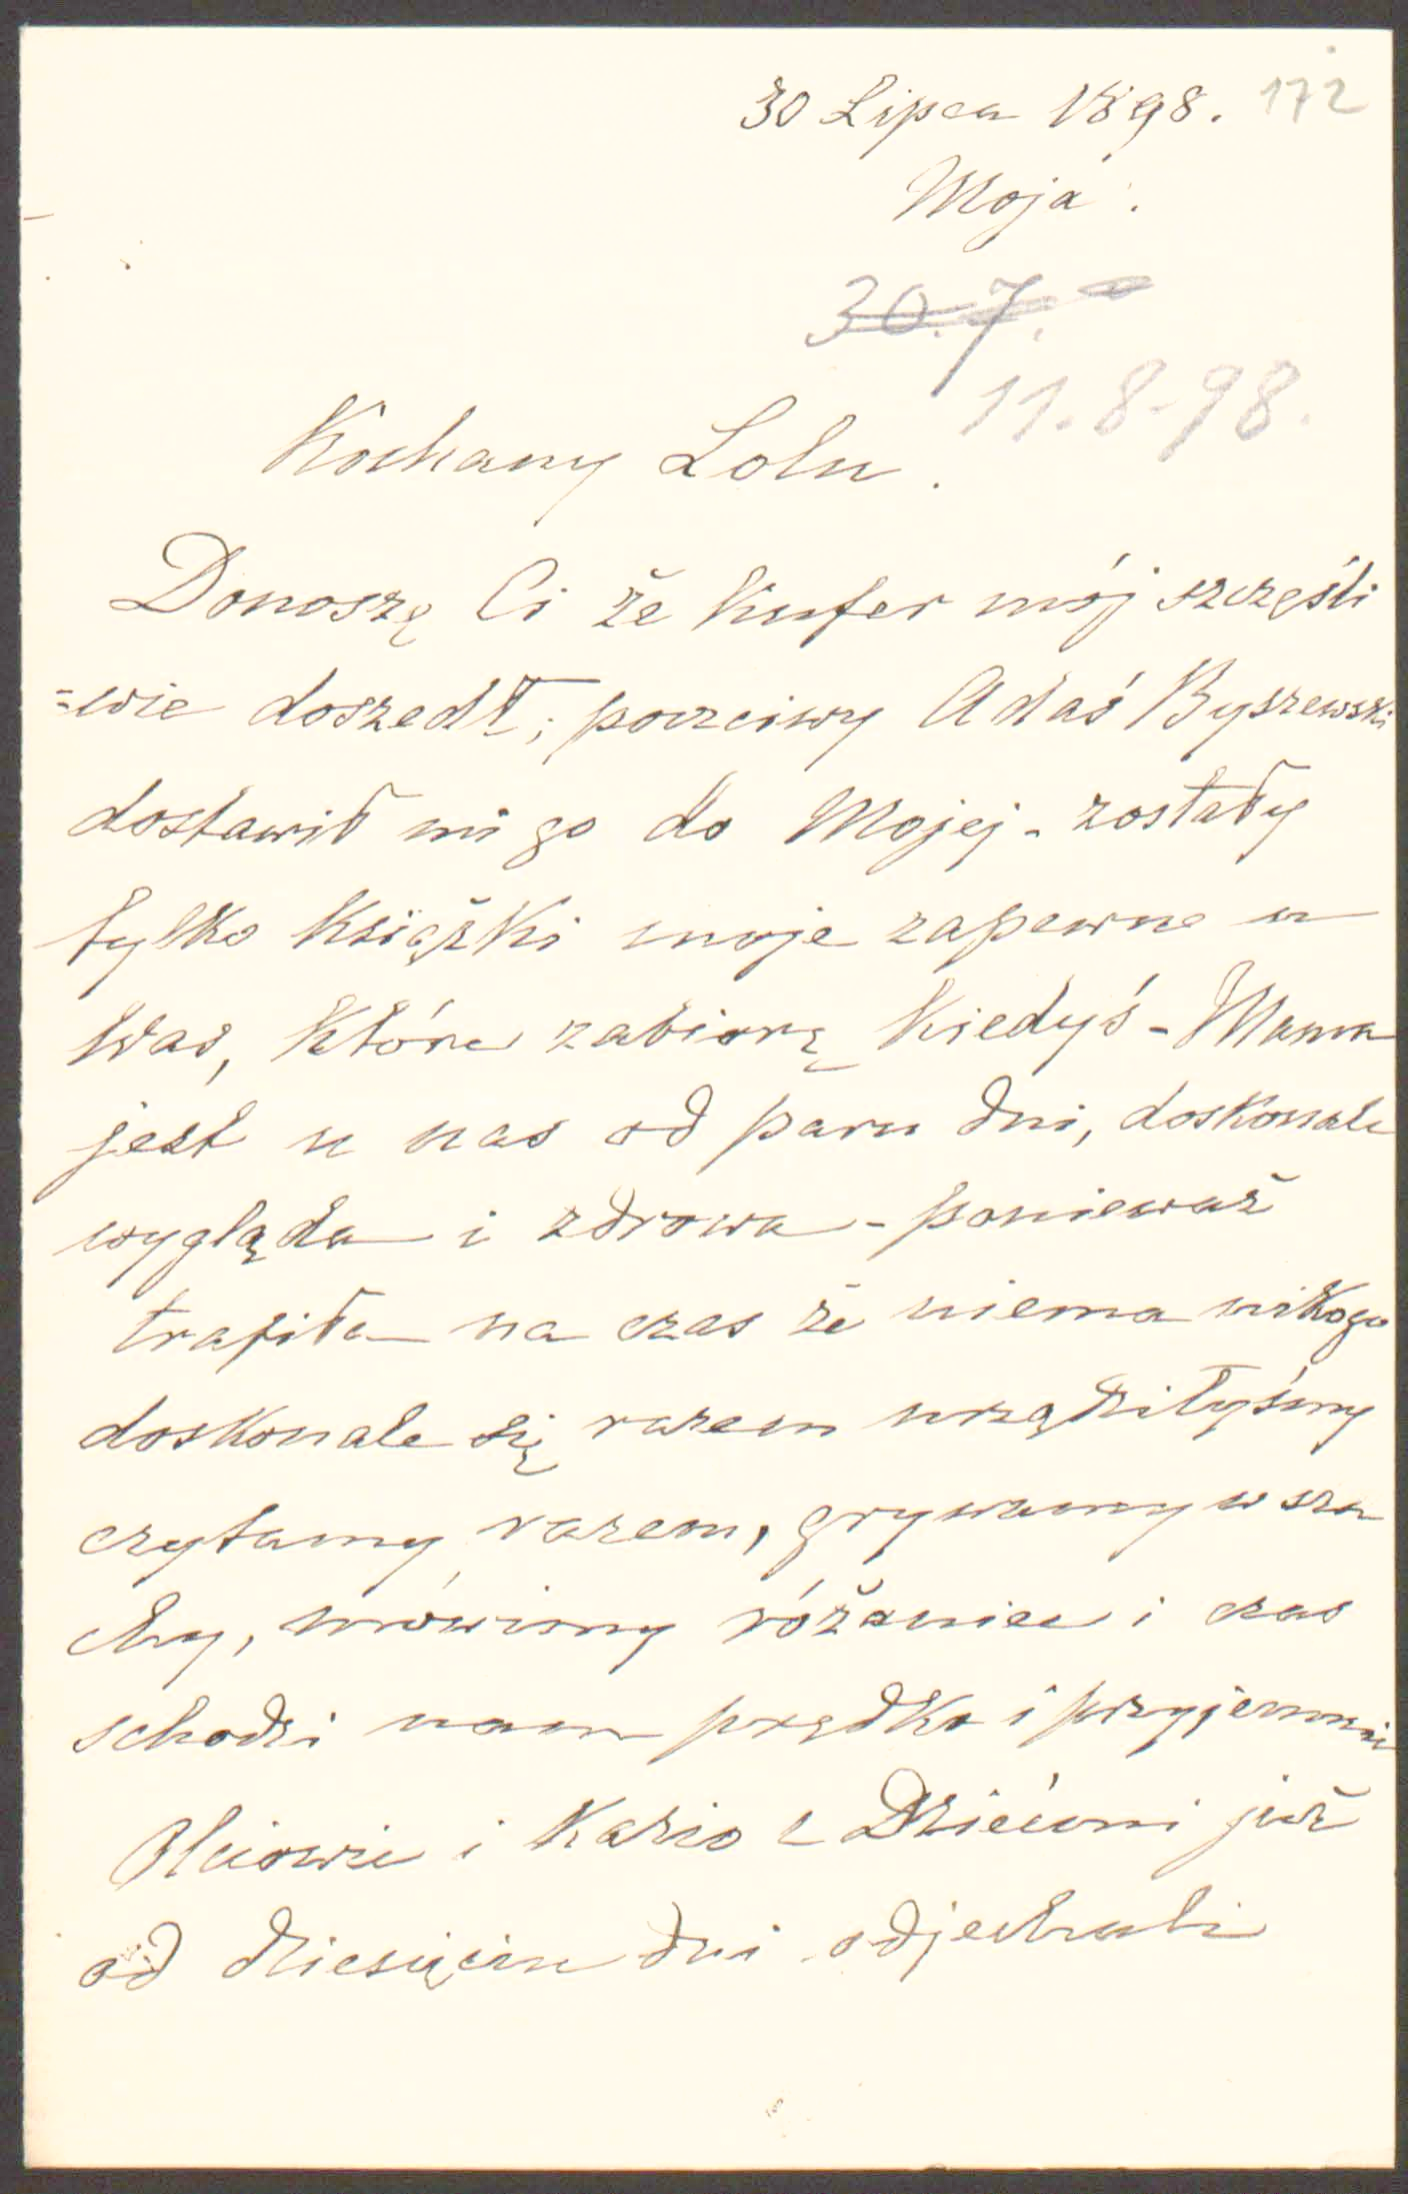 30 Lipca 1898. 172
Moja.
30.7.
11.8-98.
Kochany Lolu.
Donoszę Ci że kufer mój szczęśli
=wie doszedł; poczciwy Adaś Byszewski
dostawił mi go do Mojej - zostały
tylko książki moje zapewne u
Was, które zabiorę kiedyś - Mama
jest u nas od paru dni, doskonale
wygląda i zdrowa - ponieważ
trafiła na czas że niema nikogo
doskonale się razem urządziłyśmy
czytamy razem, grywamy w sza
chy, mówimy różaniec i czas
schodzi nam prędko i przyjemnie
Olciowie i Kazio z Dziećmi już
od dziesięciu dni odjechali